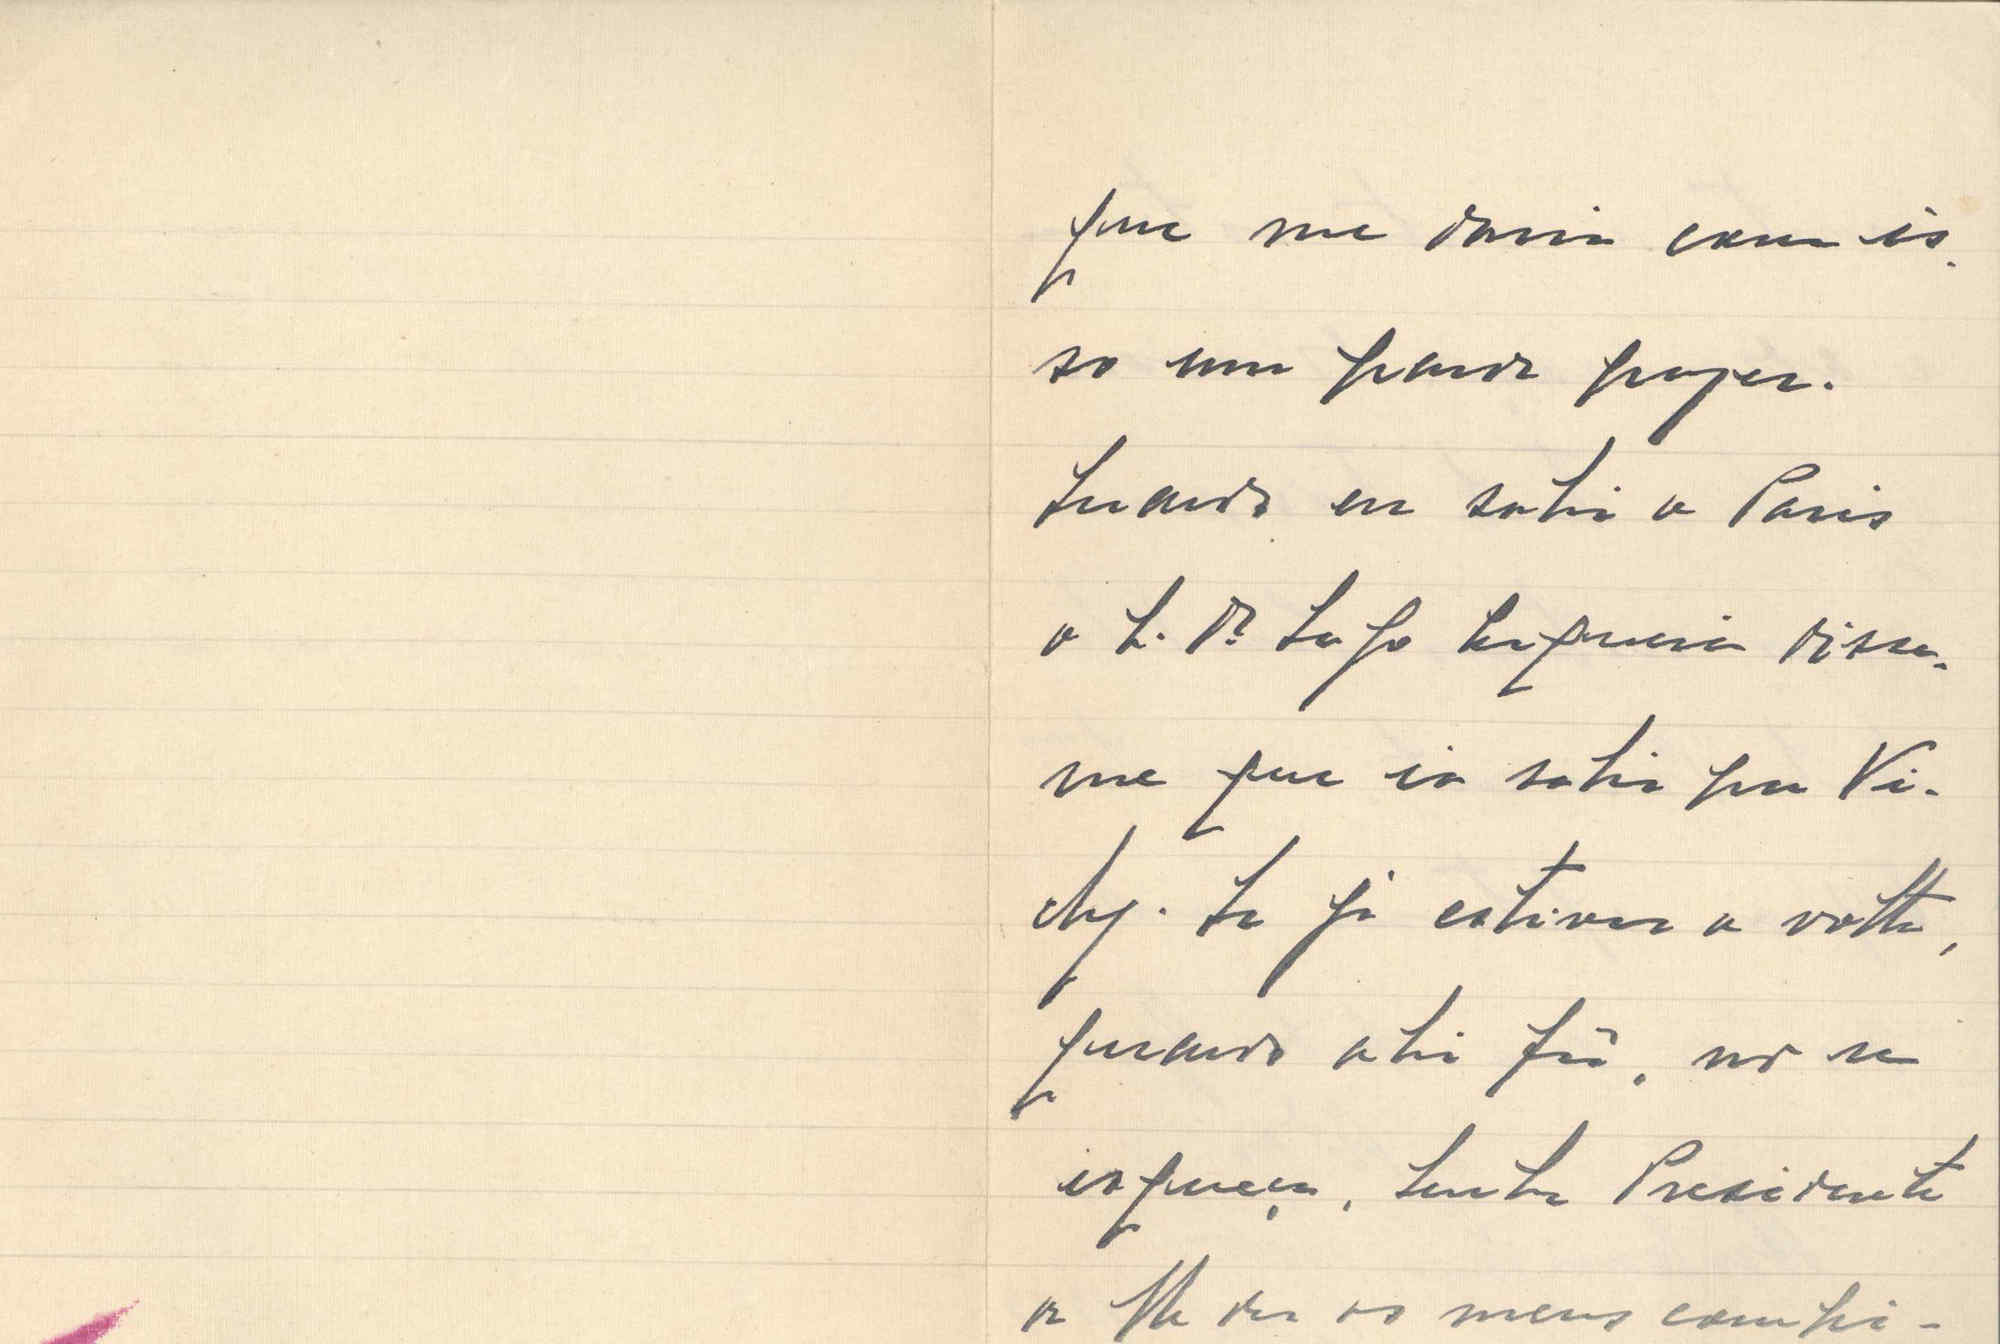 que me daria com is-
so um grande prazer.
Quando eu sahi a Paris
o S. Dr. Lafo Cerqueira disse-
me que ia sahir pra Vi-
chy. Se já estiver a volta,
quando ahi fôr, não se
esqueça, Senhor Presidente
de lhe dar os meus cumpri-